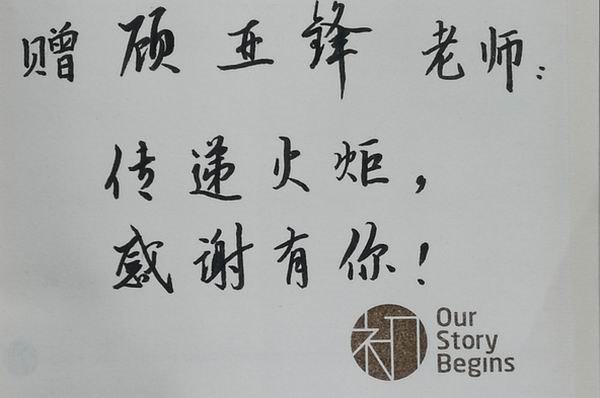 赠顾亚锋老师：
传递火炬，
感谢有你！
初
Our
Story
Begins